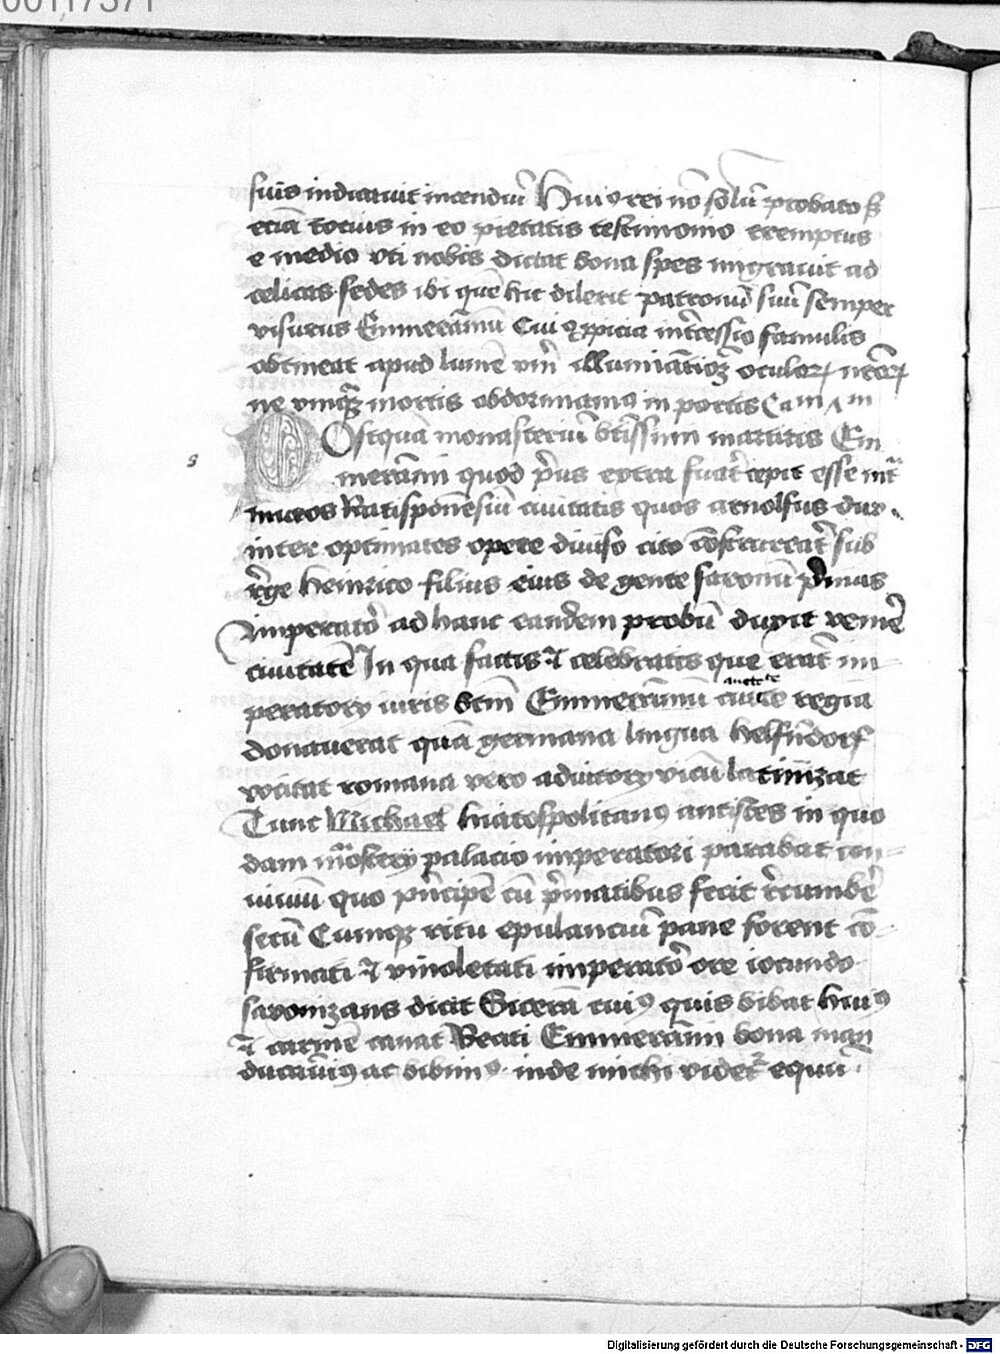 00117371
suis indicavit incendiū Huiꝰ rei nō solū probato sꝫ
etiā tocius in eo pietatis testimonio exemptus
e medio vti nobis dictat bona spes migravit ad
celicas sedes ibi quē hic dilexit patronū suū semper
visurus Emmerāmū Cuiꝰ ꝓpicia int̄cessio famulis
obtineat apud lumē vm̄ illumīatiōꝫ oculoꝝ nr̄oꝝ
ne vmqꝫ mortis obdormiamꝰ in portis
POstquā monasteriū bt̄issimi martiris Em
merāmi quod prius extra fuāt cepit esse int̄
muros Ratisponēsiū civitatis quos arnolfus dux
inter optimates opere diviso cito cōstrueāt sub
rēge Heinrico filius eius de gente saxonū prīmus
imperatō ad hanc eandem probūs duxit venīē
civitatē In qua factis ⁊ celebratis que erāt im=
peratorii iuris btm̄ Emmerāmū regia
donaverat quā germana lingua Helfn̄dorf
vocitat romana vero adiutorii vicū latinizat
Tunc Michael hiatospolitanꝰ antistes in quo
dam mōsterii palacio imperatori parabat con=
viviū quo prīncipē cū prīmatibus fecit rēcumbē
secū Cumqꝫ ritu epulanciū pane forent cō=
firmati ⁊ vinoletati imperatō ore iocundo
saxonizans dicit Sicerā cuiꝰ quis bibat huiꝰ
⁊ carmē canat Beati Emmerāmi bona man
ducavīꝰ ac bibimꝰ inde michi videt᷑ equū
Digitalisierung gefördert durch die Deutsche Forschungsgemeinschaft - DFG